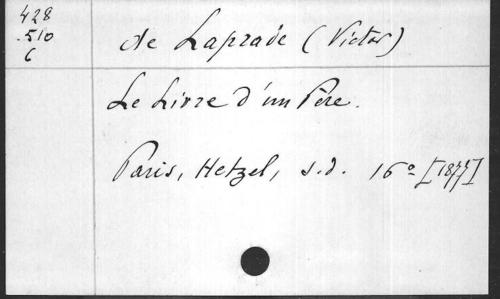 428
510
6
de Laprade (Victor)
Le Livre d'un Père.
Paris, Hetzel, s.d. 16º [1877]